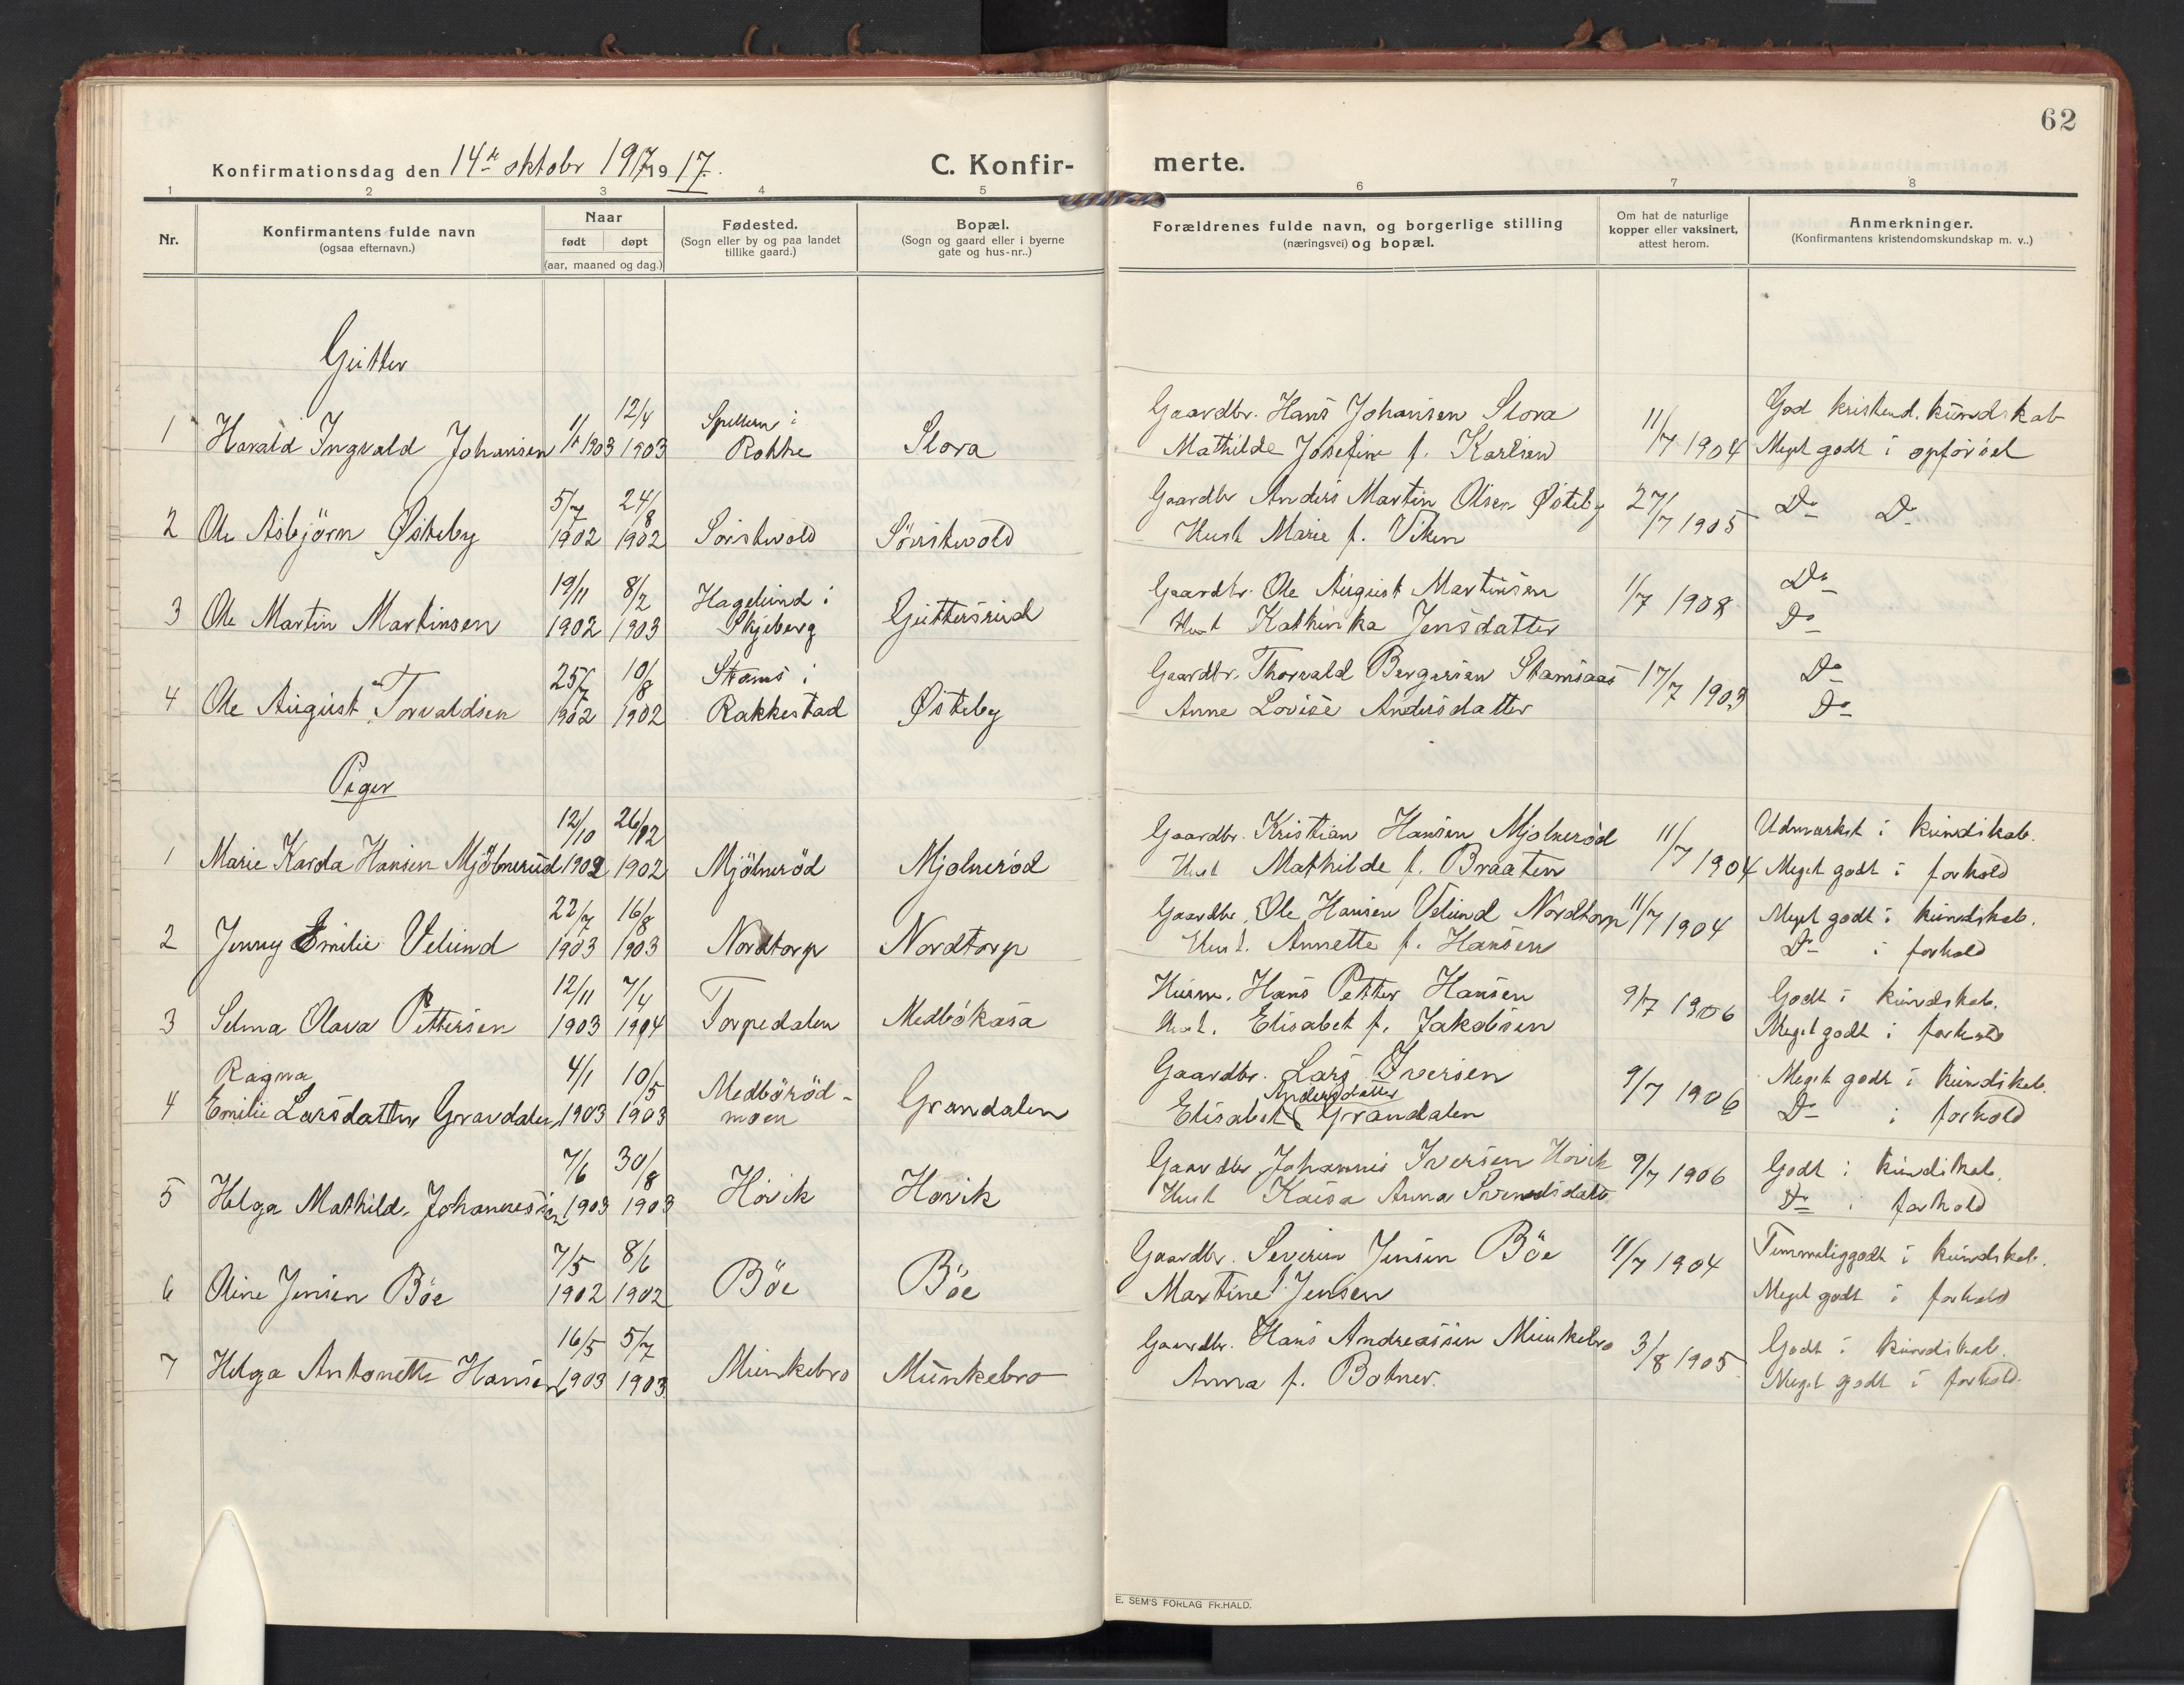 62
Konfirmationsdag den 14de oktobr 1917 1917.
C. Konfir-
merte.
1 2 3 4 5 6 7 8
Nr.
Konfirmantens fulde navn
(ogsaa efternavn.)
Naar
født døpt
(aar, maaned og dag.)
Fødested.
(Sogn eller by og paa landet
tillike gaard.)
Bopæl.
(Sogn og gaard eller i byerne
gate og hus-nr..)
Forældrenes fulde navn, og borgerlige stilling
(næringsvei) og bopæl.
Om hat de naturlige
kopper eller vaksinert,
attest herom.
Anmerkninger.
(Konfirmantens kristendomskundskap m. v..)
Gutter
12/4 Spellum i Gaardbr. Hans Johansen Slora 11/7 1904 God kristend. kundskab
1 Harald Ingvald Johansen 1/1 1903 1903 Rokke Slora Mathilde Josefine f. Karlsen Meget godt i opførsel
5/7 24/8 Gaardbr Anders Martin Olsen Østeby 27/7 1905 Do Do
2 Ole Asbjörn Østeby 1902 1902 Sørstevold Sørstevold Hust Marie f. Viken
19/11 8/2 Hagelund i Gaardbr. Ole August Martinsen 1/7 1908 Do
3 Ole Martin Martinsen 1902 1903 Skjeberg Guttersrud Hust Kathinka Jensdatter Do
25/7 10/8 Stams i Gaardbr. Thorvald Bergersen Stamsaas 17/7 1903 Do
4 Ole August Torvaldsen 1902 1902 Rakkestad Østeby Anne Lovise Andersdatter Do
Piger
12/10 26/12 Gaardbr. Kristian Hansen Mjølnerød 11/7 1904 Udmærket i kundskab.
1 Marie Karda Hansen Mjölnerud 1902 1902 Mjölnerød Mjolnerød Hust Mathilde f. Braaten Meget godt i forhold
22/7 16/8 Gaardbr. Ole Hansen Velund Nordtorp 11/7 1904 Meget godt i kundskab.
2 Jenny Emilie Velund 1903 1903 Nordtorp Nordtorp Hust. Annette f. Hansen Do i forhold
12/11 7/4 Husm. Hans Petter Hansen 9/7 1906 Godt i kundskab.
3 Selma Olava Pettersen 1903 1904 Torpedalen Medbökasa Hust. Elisabet f. Jakobsen Meget godt i forhold
Ragna 4/1 10/5 Medbörød- Gaardbr. Lars Iversen 9/7 1906 Meget godt i kundskab.
4 Emilie Larsdatter Gravdalen 1903 1903 moen Grandalen Elisabet Andersdatter Grandalen Do i forhold
7/6 30/8 Gaardbr Johannes Iversen Hovik 9/7 1906 Godt i kundskab.
5 Helga Mathilde Johannessen 1903 1903 Høvik Høvik Hust Kaisa Anna Svendsdatter Do i forhold
7/5 8/6 Gaardbr. Severin Jensen Böe 11/7 1904 Temmeliggodt i kundskab.
6 Oline Jensen Böe 1902 1902 Böe Böe Martine Jensen Meget godt i forhold
16/5 5/7 Gaardbr. Hans Andreassen Munkebro 3/8 1905 Godt i kundskab.
7 Helga Antonette Hansen 1903 1903 Munkebro Munkebro Anna f. Botner. Meget godt i forhold.
E. SEM'S FORLAG FR.HALD.